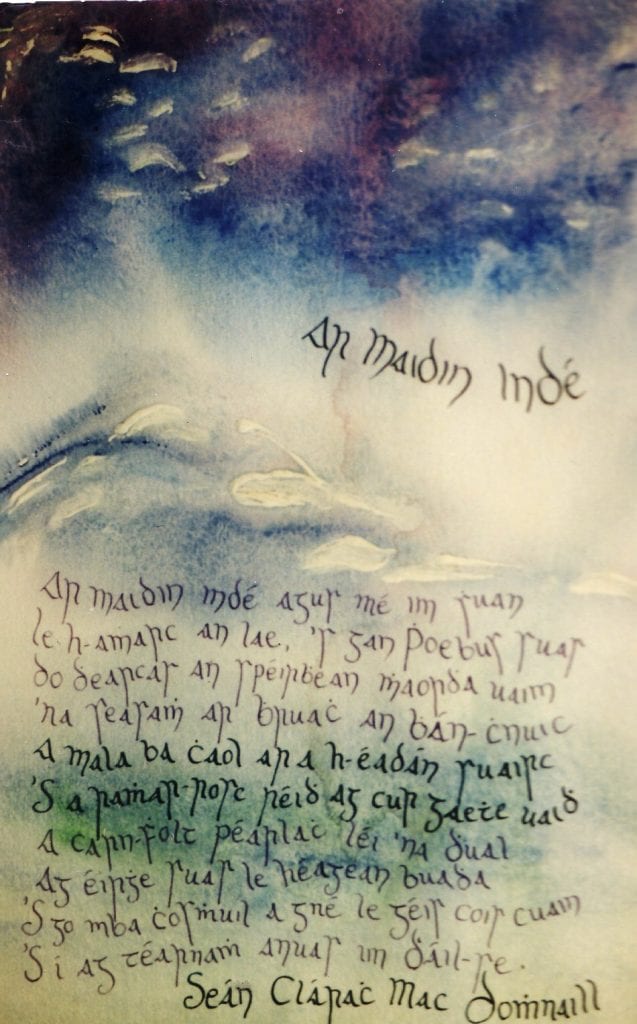 Ar Maidin Indé
Ar maidin indé agus mé im suan
le h-aṁarc an lae, 's gan Ṗoebus suas
do dearcas an spéirḃean ṁaorda uaim
'na seasaṁ ar bruaċ an bán-ċnuic
A mala ba ċaol ar a h-éadán suairc
'S a raṁar-rosc réid ag cur gaeṫe uaid
A carn-ḟolt péarlaċ léi 'na dual
Ag éirġe suas le héagean buada
'S go mba ċosṁuil a gné le géis cois cuain
'S í ag téarnaṁ anuas im dáil-se.
Seán Cláraċ Mac Doṁnaill